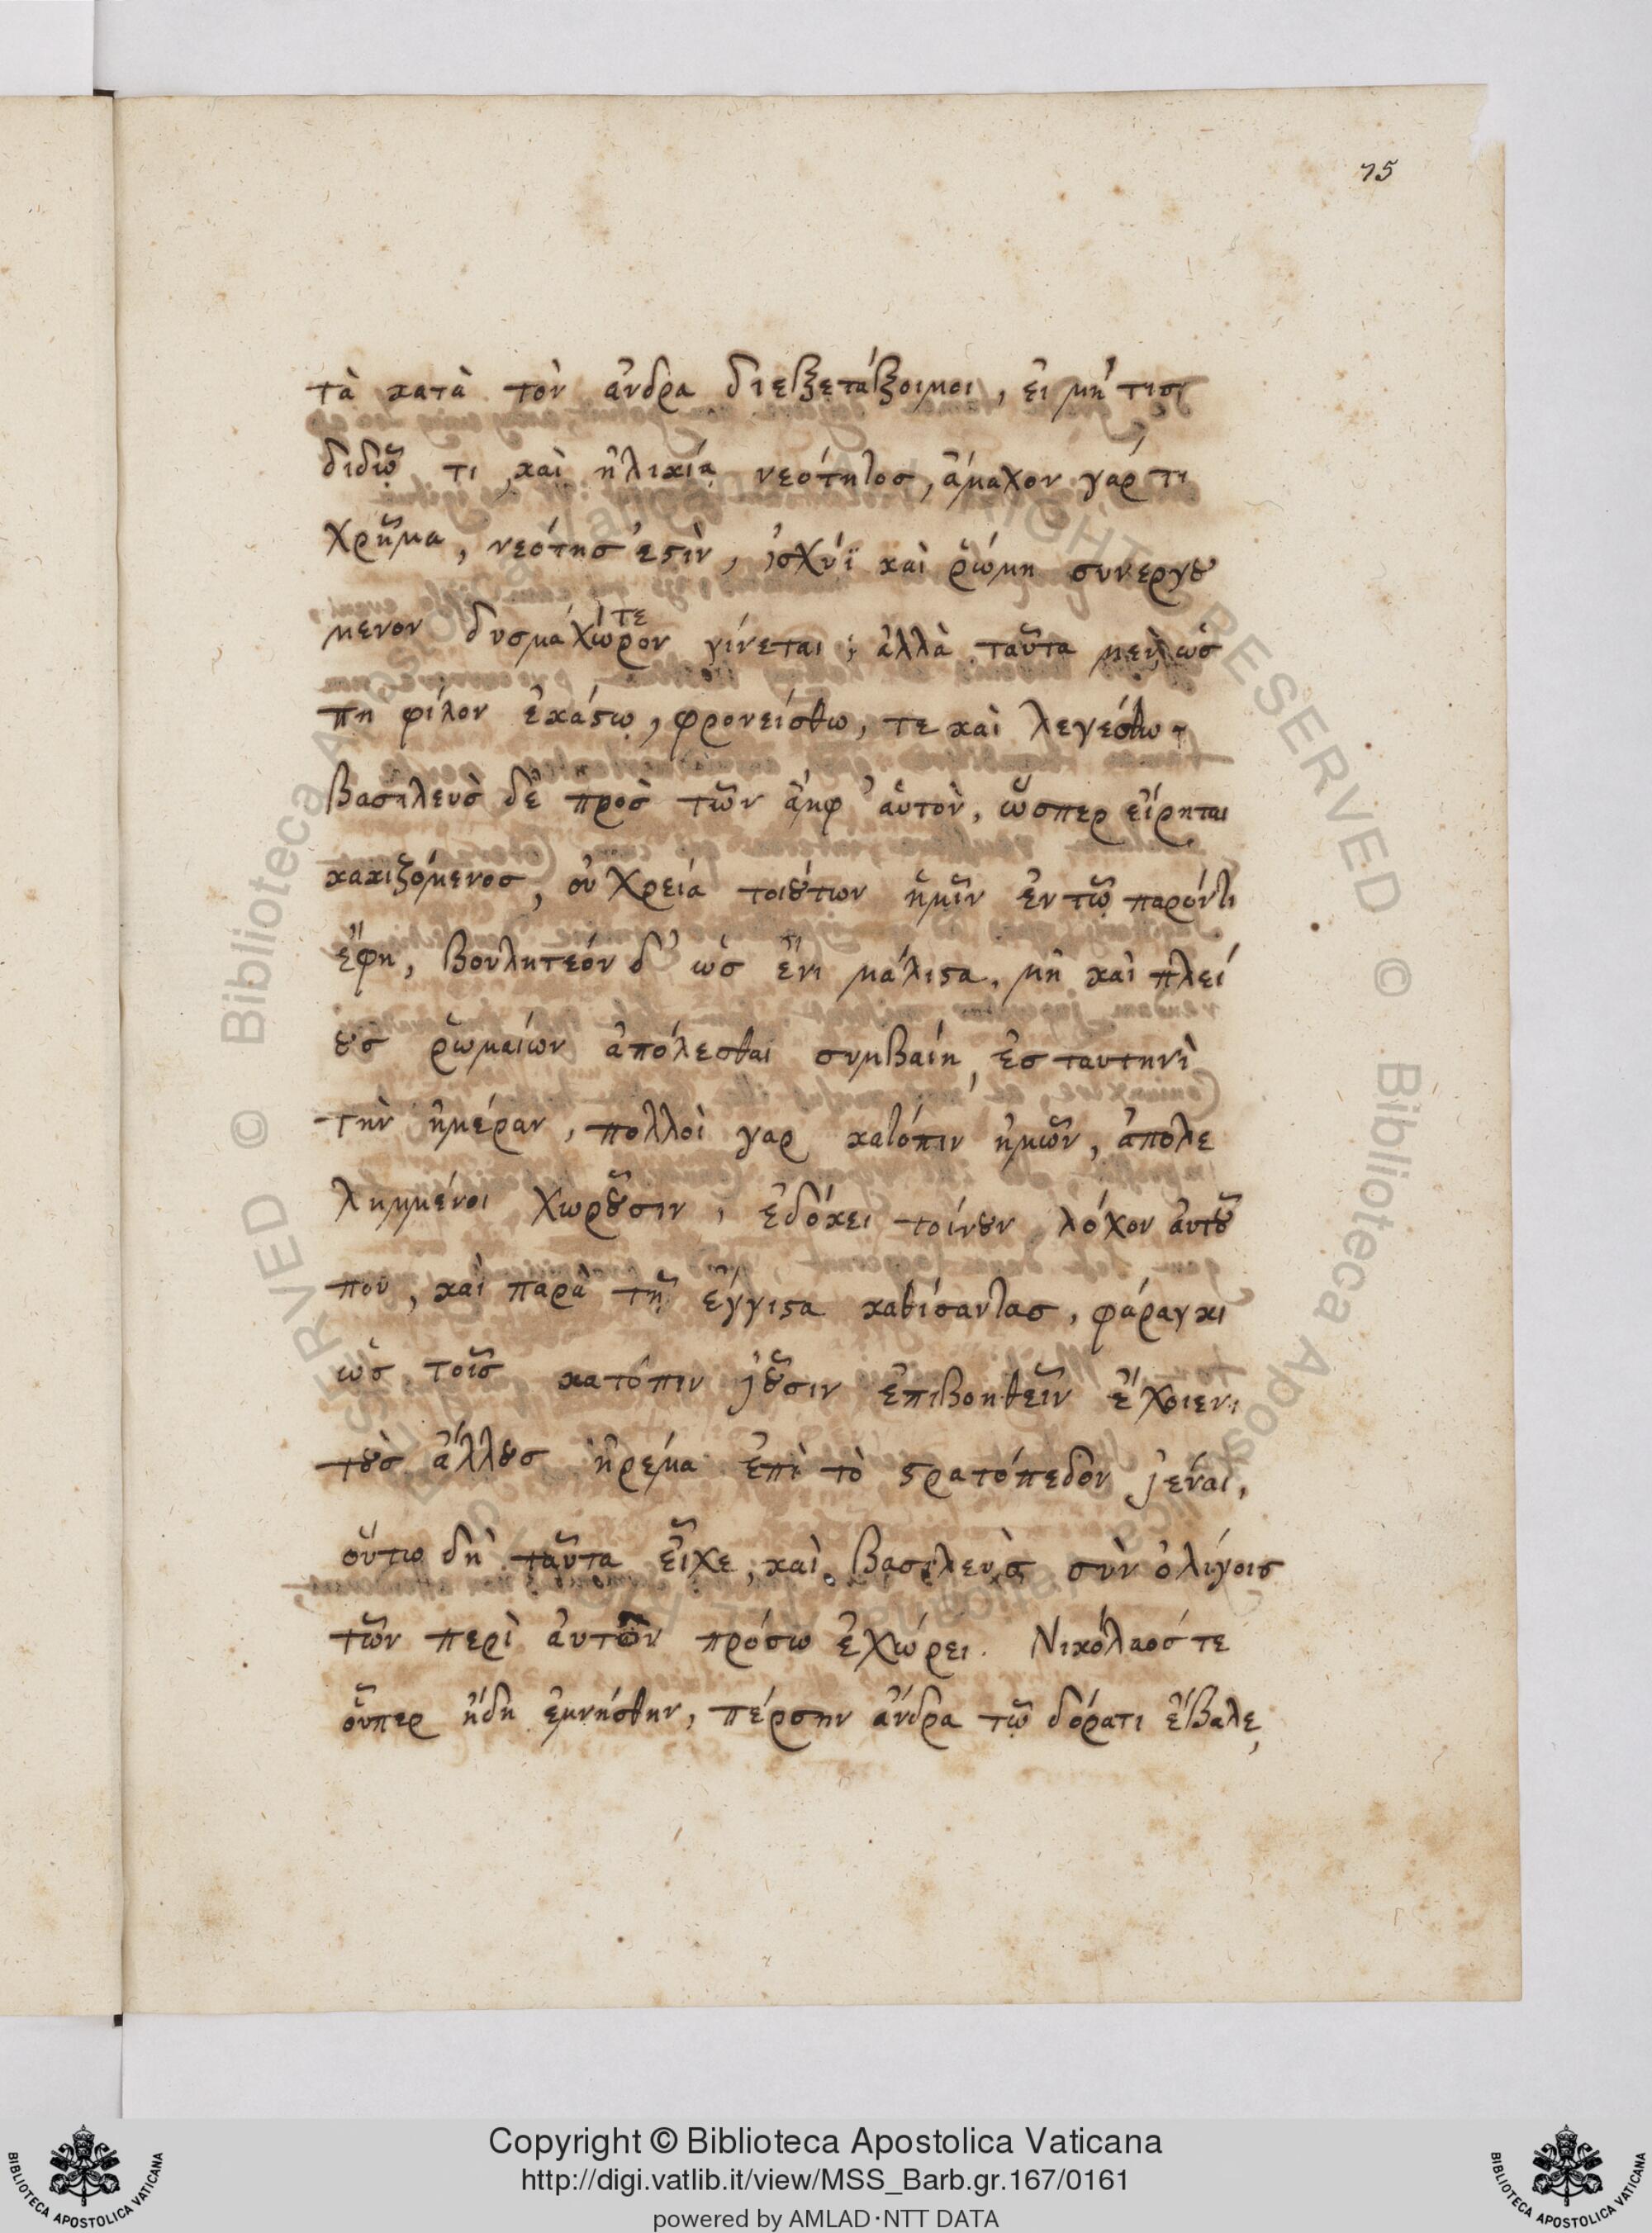 75
τὰ κατὰ τὸν ἄνδρα διεξετάξοιμοι, εἰ μή τισι
διδῶ τι, καὶ ἡλικίᾳ νεότητος, ἄμαχον γάρ τι
χρῆμα, νεότης ἐστὶν, ἰσχύϊ καὶ ῥώμη συνεργȣ
μενον δυσμαχώτερον γίνεται· ἀλλὰ ταῦτα μὲν ὡς
πη φίλον ἑκάστῳ, φρονείσθω, τε καὶ λεγέσθω·
Βασιλευς δὲ πρὸς τῶν ἀμφ' αὑτὸν, ὥσπερ εἴρηται
κακιζόμενος, οὐ χρεία τοιȣ́των ἡμῖν ἐν τῷ παρόντι
ἔφη, βουλητεόν δ' ὡς ἔνι μάλιστα, μὴ καὶ πλεί
ȣς ῥωμαίων ἀπόλεσθαι συμβαίη, ἐς ταυτηνὶ
τὴν ἡμέραν, πολλοὶ γαρ κατόπιν ἡμῶν, ἀπολε
λημμένοι χωρȣ͂σιν, ἐδόκει τοίνυν λόχον αὐτȣ͂
που, καὶ παρὰ τῇ ἔγγιστα καθίσαντας, φάραγκι
ὡς τοῖς κατόπιν ἰȣ͂σιν ἐπιβοηθεῖν ἔχοιεν·
τȣ̀ς ἄλλȣς ἠρέμα ἐπὶ τὸ στρατόπεδον ἰέναι,
οὕτω δὴ ταῦτα εἶχε, καὶ Βασιλεὺς σὺν ὀλίγοις
τῶν περὶ αὐτὸν πρόσω ἐχώρει. Νικόλαός τε
οὗπερ ἤδη ἐμνήσθην, πέρσην ἄνδρα τῷ δόρατι ἔβαλε,
Copyright © Biblioteca Apostolica Vaticana
http://digi.vatlib.it/view/MSS_Barb.gr.167/0161
powered by AMLAD·NTT DATA